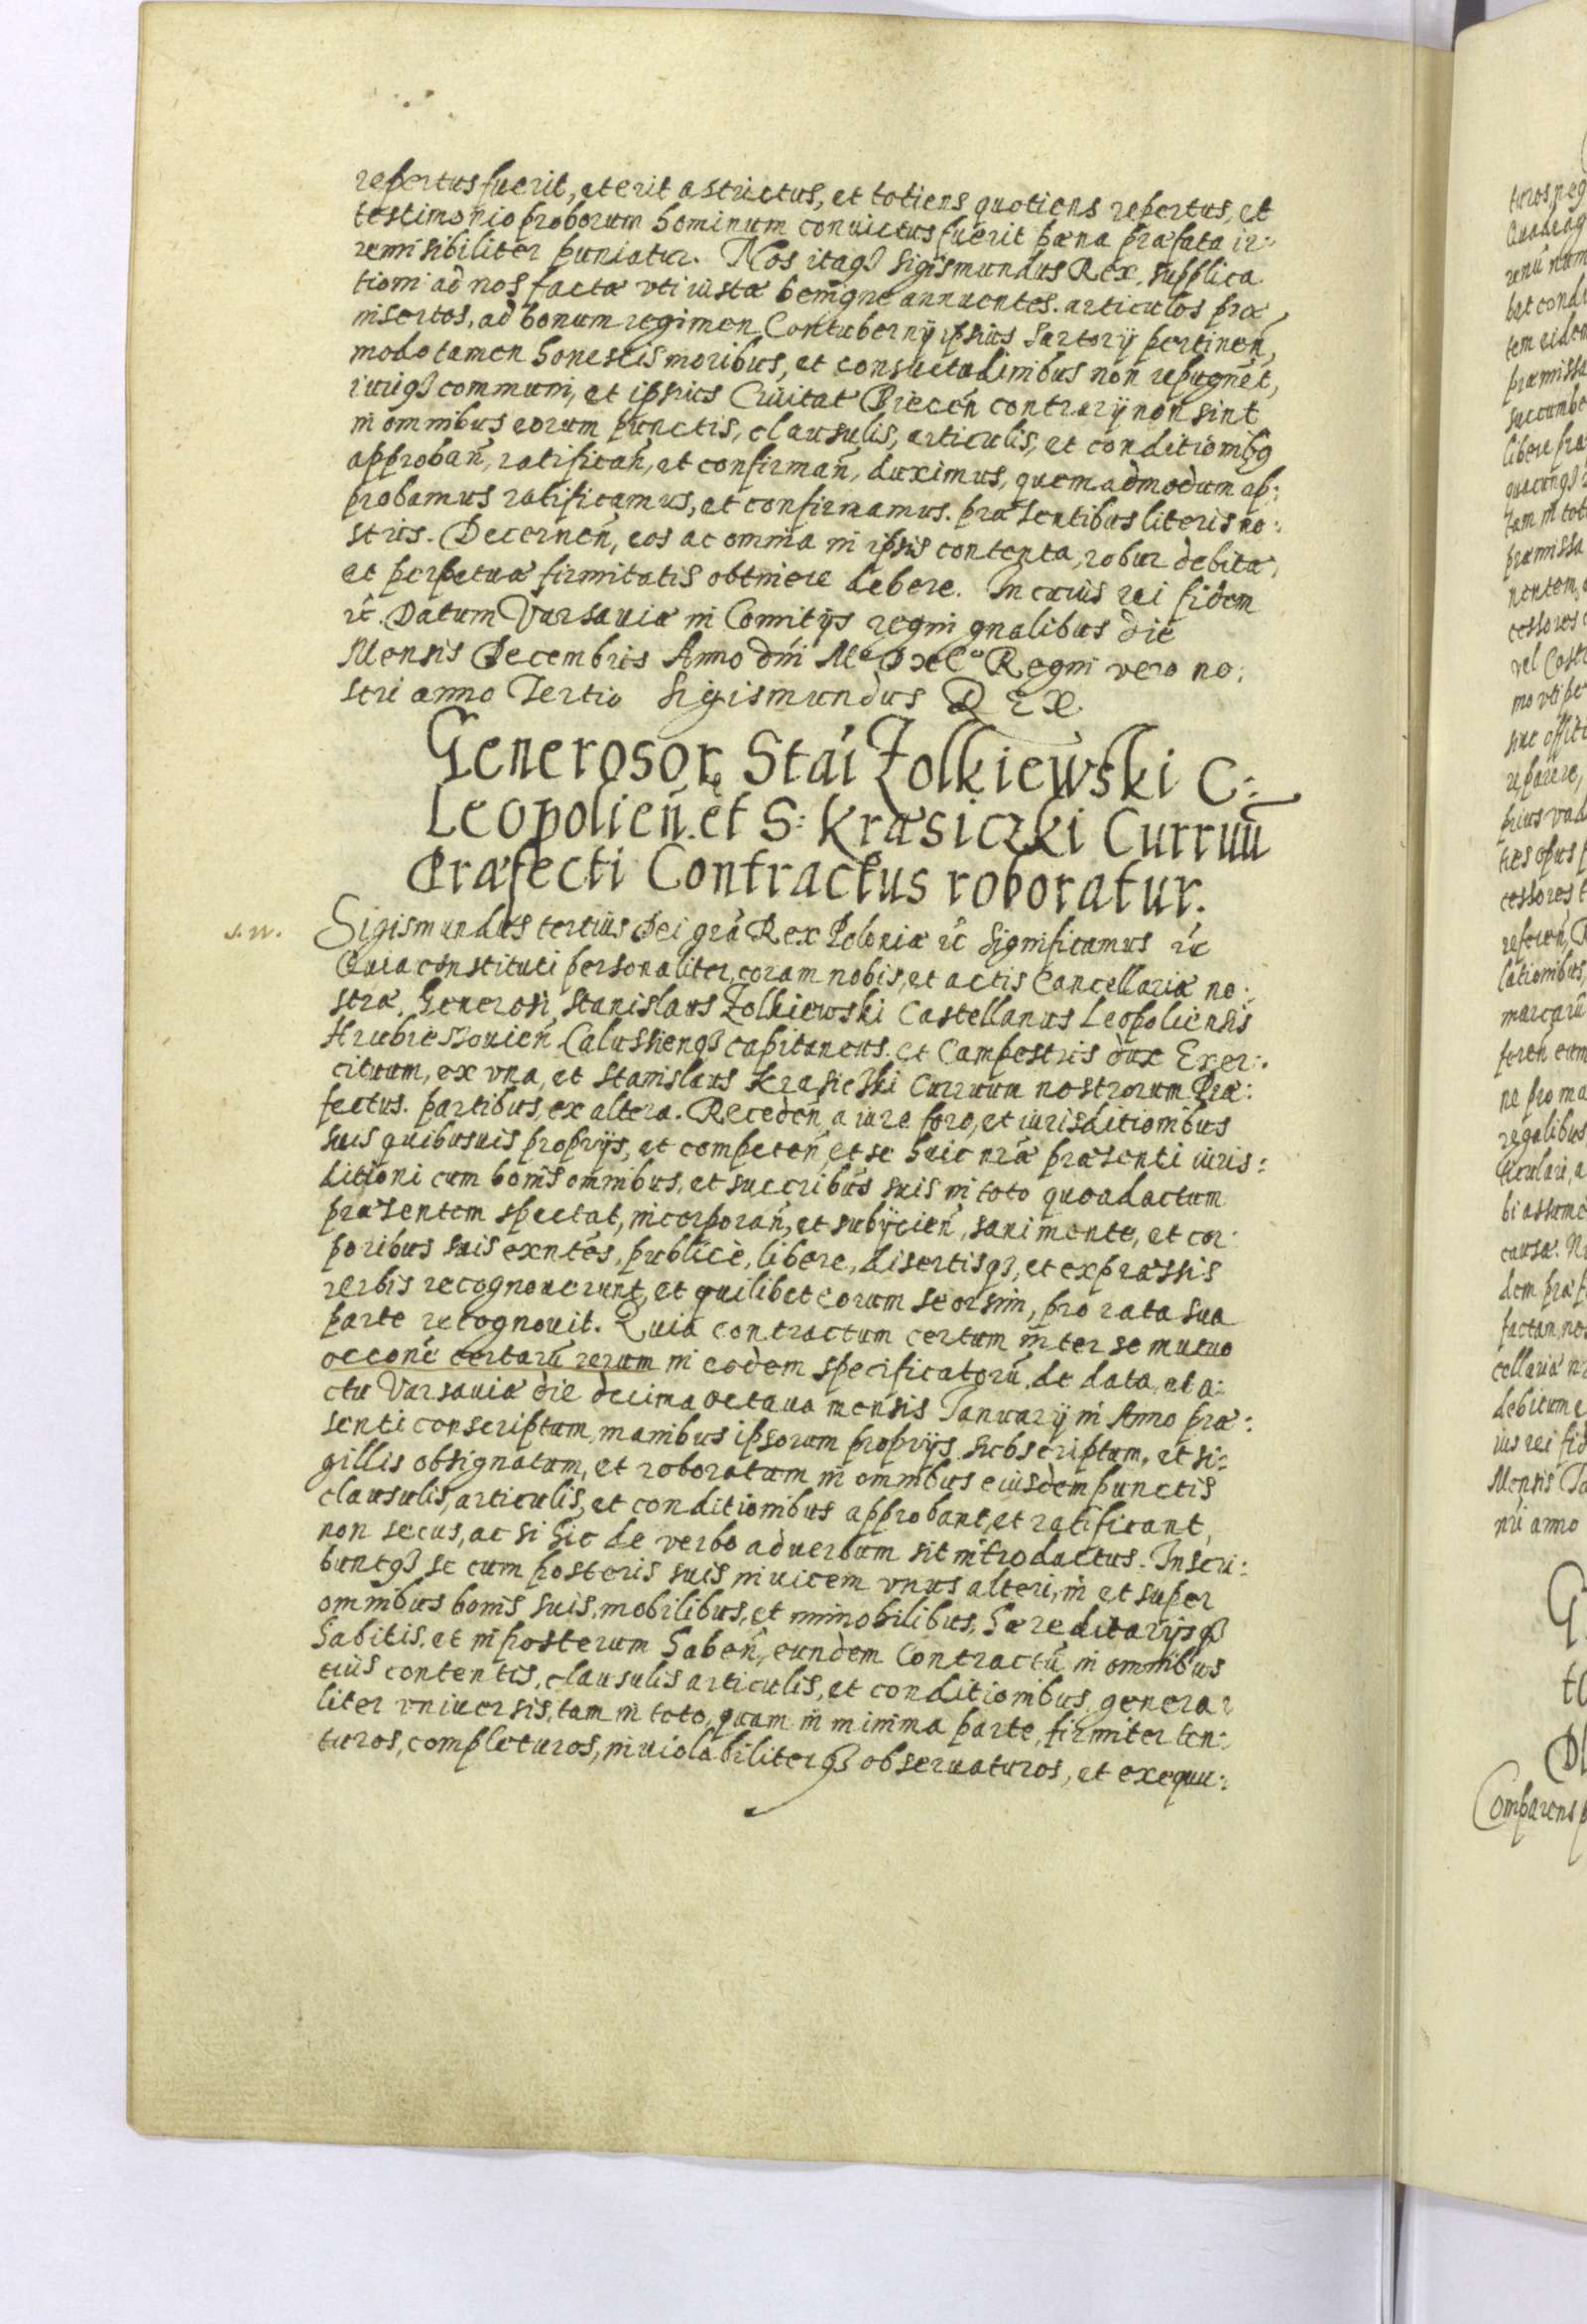 repertus fuerit, et erit astrictus, et totiens quotiens repertus, et
testimonio proborum hominum conuictus fuerit pæna præfata ir:
remisibiliter puniatur. Nos itaq3 Sigismundus Rex, supplica
tioni ad nos factæ vti iustæ benigne annuentes. articulos præ
insertos, ad bonum regimen Contubernÿ ipsius Sartorÿ pertineñ,
modo tamen honestis moribus, et consuetudinibus non repugnēt,
iuriq3 communi, et ipsius Ciuitat Bieceñ contrarÿ non sint
in omnibus eorum punctis, clausulis, articulis, et conditionibq
approbañ, ratificañ, et confirmañ, duximus, quemadmodum ap:
probamus ratificamus, et confirmamus. præsentibus literis no:
stris. Decerneñ, eos ac omnia in ipsis contenta, robur debitæ,
et perpetuæ firmitatis obtinere debere. In cuius rei fidem
ꝛc. Datum Varsauiæ in Comitÿs regni gnalibus die
Mensis Decembris Anno dñi Mº D xCº Regni vero no:
stri anno Tertio Sigismundus REX
Generosoꝝ Stai Zolkiewski C:
Leopolieñ. et S: Krasiczki Curruū
Præfecti Contractus roboratur.
s. w. Sigismundus tertius Dei grā Rex Poloniæ ꝛc Significamus ꝛc
Quia constituti personaliter, coram nobis, et actis Cancellariæ no:
stræ. Generosi, Stanislaus Zolkiewski Castellanus Leopoliensis
Hrubieszouieñ Calussienq3 capitaneus. et Campestris dux Exer:
cituum, ex vna, et Stanislaus Krasicski Curruum nostrorum Præ:
fectus. partibus, ex altera. Recedeñ, a iure foro, et iurisditionibus
suis quibusuis proprÿs, et competeñ, et se huic nræ præsenti iuris:
ditioni cum bonis omnibus, et succribus suis in toto quoad actum
præsentem spectat, incorporañ, et subÿcieñ, sani mente, et cor:
poribus suis exntes, publicè, libere, disertisq3, et expræssis
verbis recognouerunt, et quilibet eorum seorsim, pro rata sua
parte recognouit. Quia contractum certum inter se mutuo
occone certarū rerum in eodem specificatorū, de data, et a:
ctu Varsauiæ die decima octaua mensis Januarÿ in Anno præ:
senti conscriptum, manibus ipsorum proprÿs subscriptum, et si:
gillis obsignatum, et roboratum in omnibus eiusdem punctis
clausulis, articulis, et conditionibus approbant, et ratificant,
non secus, ac si hic de verbo ad uerbum sit introductus. Inscri:
buntq3 se cum posteris suis inuicem vnus alteri, in et super
omnibus bonis suis, mobilibus, et immobilibus, hæreditarÿsq3
habitis, et in posterum habeñ, eundem Contractū in omnibus
eius contentis, clausulis articulis, et conditionibus, genera:
liter vniuersis, tam in toto, quam in minima parte, firmiter ten:
turos, completuros, inuiolabiliterq3 obseruaturos, et exequu: